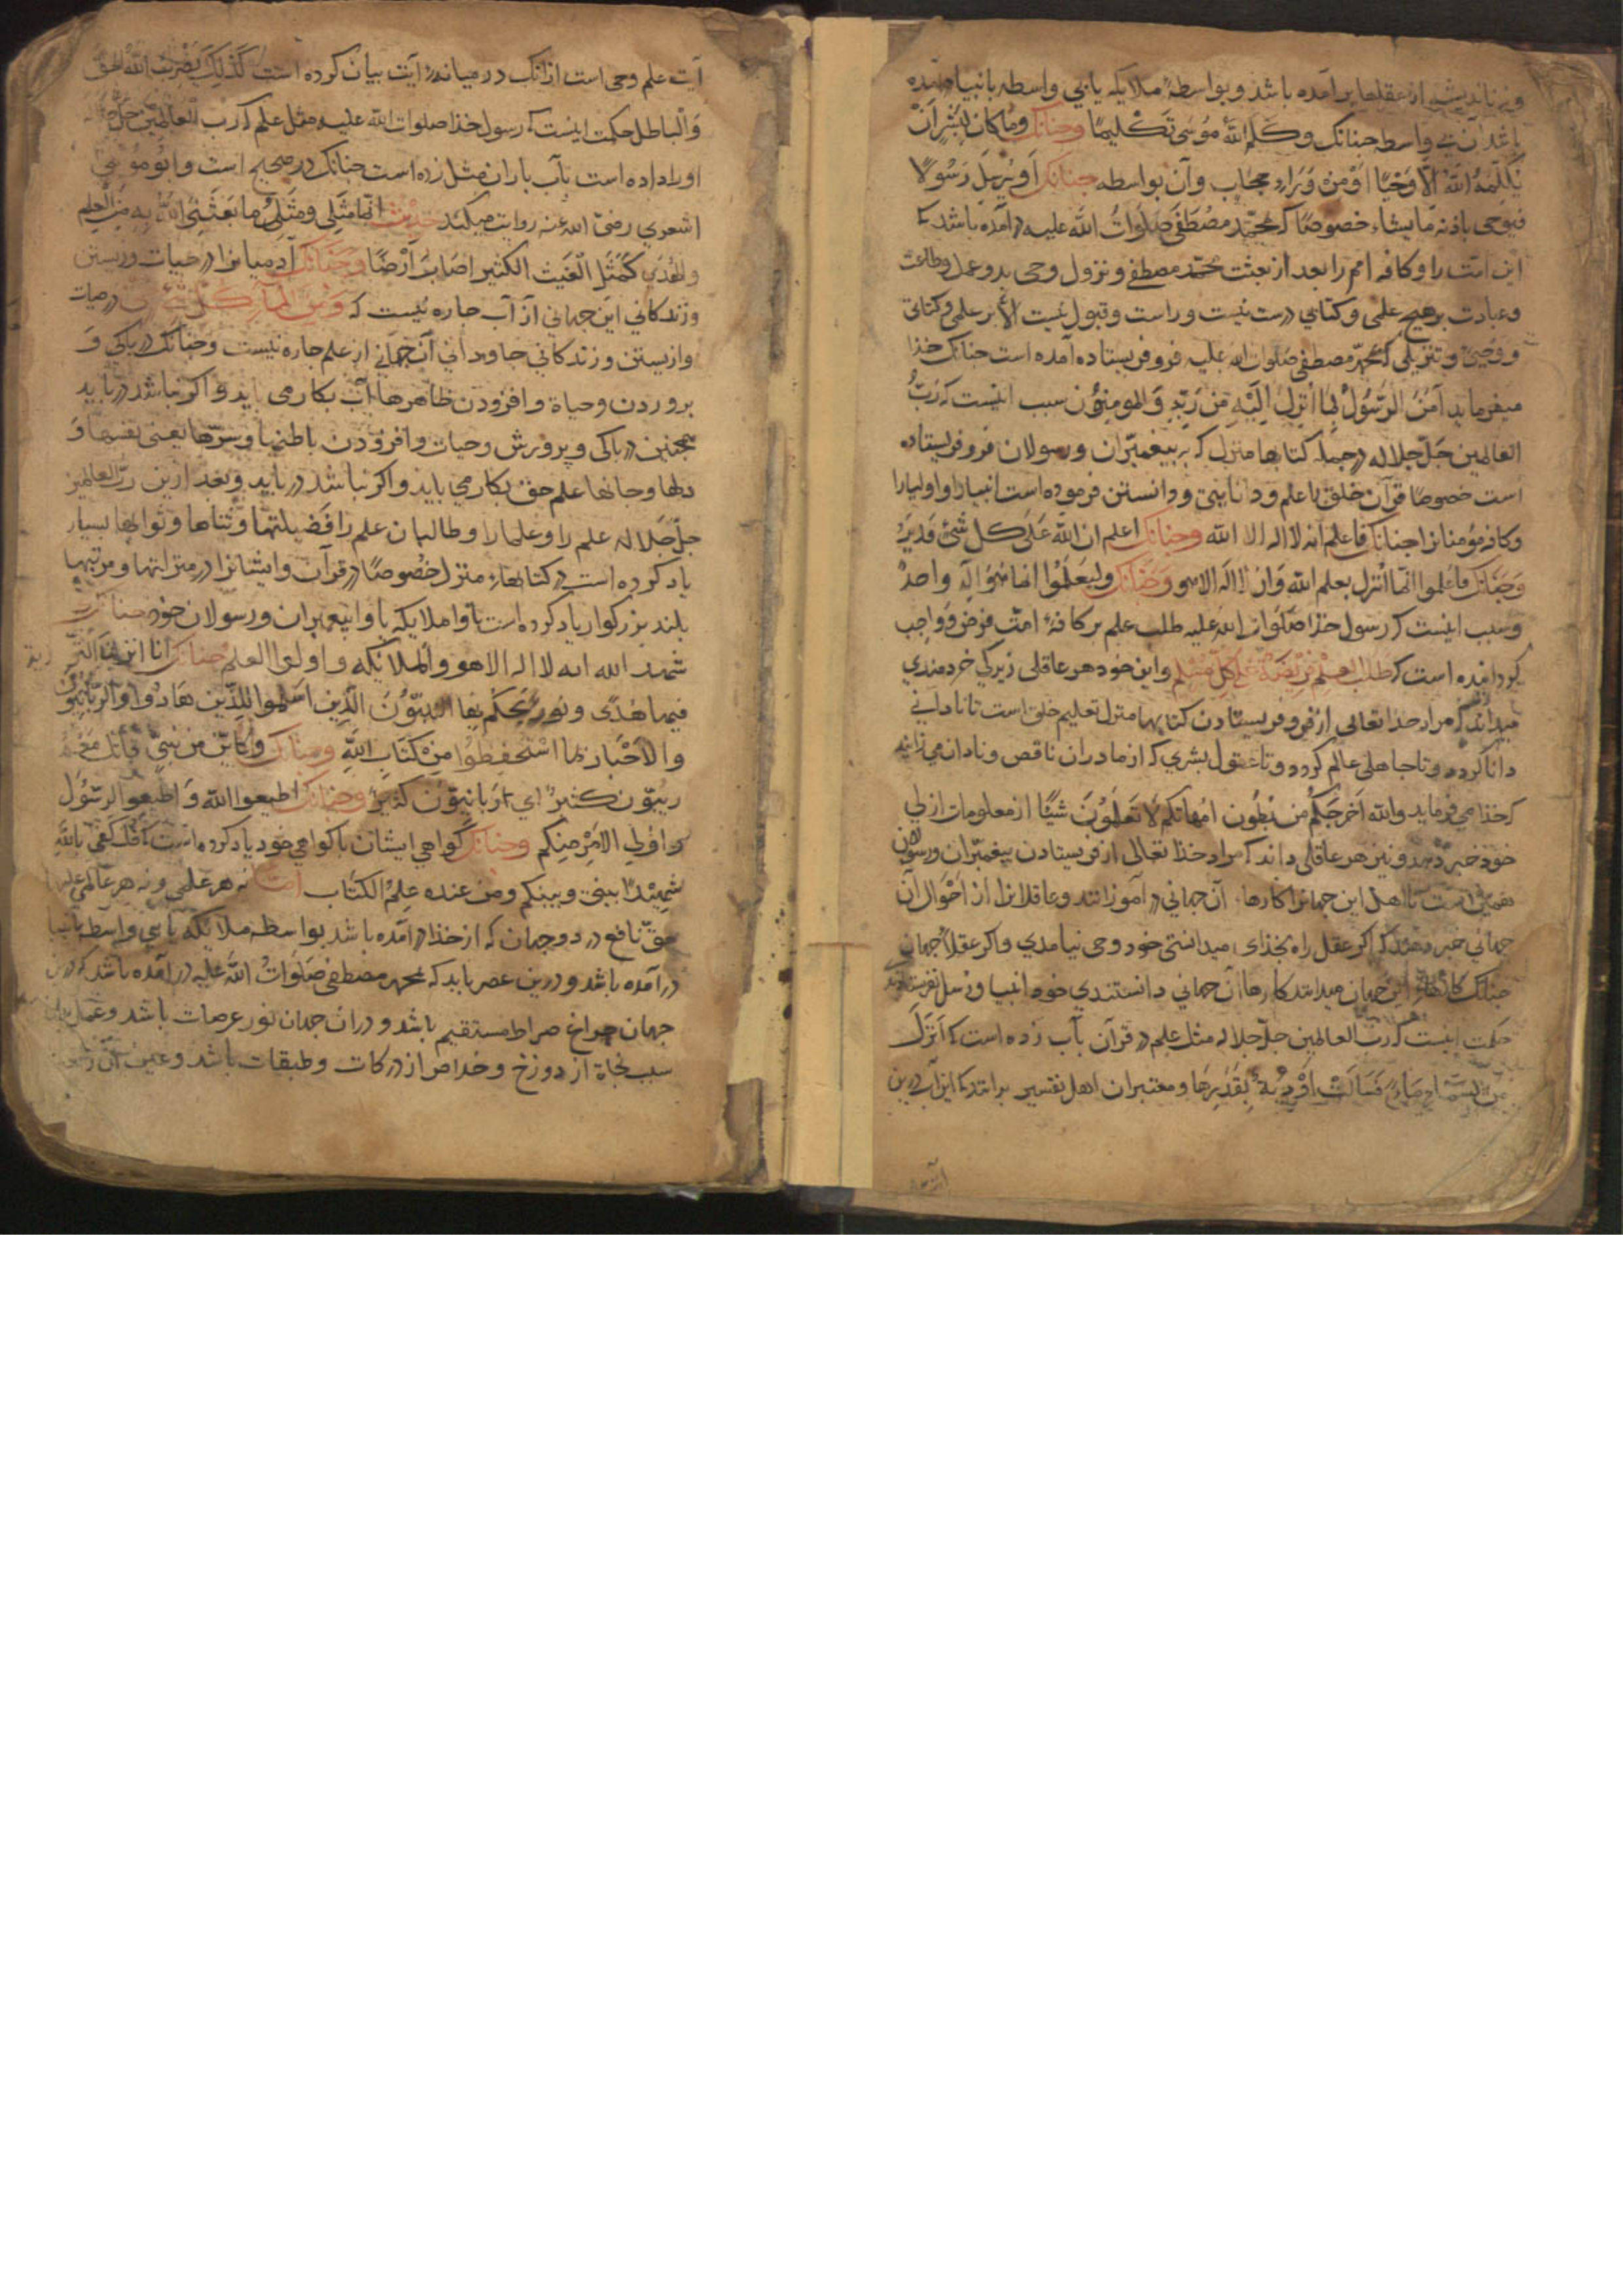 و نه باندیشه از عقلها برآمده باشد و بواسطهٔ ملایکه یا بی واسطه بانبیا آمده
باشد آن بی واسطه جنانک وَكَلَّمَ اللّٰهُ مُوسَى تَكْلِيمًا وجنانک وَمَا كَانَ لِبَشَرٍ اَنْ
يُكَلِّمَهُ اللّٰهُ اِلَّا وَحْيًا اَوْ مِنْ وَرَاءِ حِجَابٍ وآن بواسطه جنانک اَوْ يُرْسِلَ رَسُولًا
فيوحى باذنه ما يشاء خصوصًا که بمحمّد مصطفى صَلَوَاتُ اللّٰه عليه درآمده باشد که
این امّت را و کافه امم را بعد از بعثت محمّد مصطفی و نزول وحی بدو عمل و طاعت
و عبادت بر هیچ علمی و کتابی درست نیست و راست و قبول نیست الّا بر علمی و کتابی
و وحیی و تنزیلی که بمحمّد مصطفی صلوات الله علیه فرو فریستاده آمده است جنانک خذا
میفرماید آمَنَ الرَّسُولُ بِمَا اُنْزِلَ اِلَيْهِ مِنْ رَبِّهِ وَالمومنون سبب اینست که ربّ
العالمین جَلّ جلاله در جمله کتابها منزل که به پیغمبران و رسولان فرو فریستاده
است خصوصًا قرآن خلق را علم و دانایی و دانستن فرموده است انبیا را و اولیا را
و کافه مؤمنانرا جنانک فاعلم انه لا اله الا الله وجنانک اعلم ان الله عَلَى كل شئ قدير
وجنانک فاعلموا انّما انزل بعلم الله وَان لا اله الا هو وجنانک وليعلموا انما هو اله واحدٌ
و سبب اینست که رسول خذا صَلَوات الله علیه طلب علم بر کافهٔ امت فرض و واجب
کردانیده است که طَلَبُ العِلْمِ فَرِيضَةٌ عَلَى كُلِّ مُسْلِمٍ و این خود هر عاقلی زیرکی خردمندی
میداند که مراد خذا تعالی از فرو فریستادن کتابها منزل تعلیم خلق است تا نادانی
دانا گردد و تا جاهلی عالم گردد و تا عقول بشری که از مادران ناقص و نادان می زایند
که خذا می فرماید والله اَخْرَجَكُم من بُطُون امّهاتكم لَا تَعلَمُونَ شَيْئًا از معلومات ازلی
خود خبر دهد و نیز هر عاقلی داند که مراد خذا تعالی از فریستادن پیغمبران و رسولان
همین است تا اهل این جهانرا کارها آن جهانی در آموزانند و عاقلانرا از احوال آن
جهانی خبر دهند که اگر عقل راه بخذای میدانستی خود وحی نیامدی و اگر عقلا جهان
جنانک کارهاء این جهان میدانند کارها آن جهانی دانستندی خود انبیا و رسل نفرستادند
حکمت اینست که ربّ العالمین جلّ جلاله مثل علم در قرآن بآب زده است که اَنْزَلَ
مِنَ السَّمَاءِ مَاءً فَسَالَتْ اَوْدِيَةٌ بِقَدَرِهَا و معتبران اهل تفسیر برانند که این آب درین
آیت علم وحی است از آنک در میانهٔ آیت بیان کرده است كَذٰلِكَ يَضْرِبُ اللّٰهُ الحَقَّ
وَالْبَاطل حکمت اینست که رسول خذا صلوات الله علیه مثل علم که ربّ العالمین جلّ جلاله
او را داده است بآب باران مثل زده است جنانک در صحیح است و ابو موسی
اشعری رضی الله عنه روایت میکند حدیث انّما مَثَلِي وَمَثَلُ ما بَعَثَنِيَ اللّٰهُ بِهِ مِنَ العِلْمِ
والهُدَى كَمَثَلِ الغَيْثِ الكثير اصَابَ اَرْضًا وجنانک آدمیانرا در حیات و زیستن
و زندگانی این جهانی از آب جاره نیست که وَمِنَ الماءِ كُلَّ شَئٍ حَىٍّ در حیات
و از زیستن و زندگانی جاودانی آن جهانی از علم جاره نیست وجنانک در پاکی و
پروردن و حیاة و افزودن ظاهرها آب بکار می باید و اگر نباشد در باید
همجنین در پاکی و پرورش و حیات و افزودن باطنها و سرّها یعنی نفسها و
دلها و جانها علم حق بکار می باید و اگر نباشد در باید و بعد ازین ربّ العالمین
جلّ جلاله علم را و علما را و طالبان علم را فضیلتها و ثناها و ثوابها بسیار
یاد کرده است در کتابهاء منزل خصوصًا در قرآن و ایشانرا در منزلتها و مرتبتها
بلند بزرگوار یاد کرده است با وا ملایکه با وا پیغمبران و رسولان خود جنانک
شهد الله انه لا اله الا هو والملائكة واولوا العلم جنانک انا انزلنا التوریة
فيها هُدًى وَنُورٌ يَحْكُمُ بِهَا النَّبِيُّونَ الَّذِينَ اَسْلَمُوا لِلَّذِينَ هَادُوا وَالرَّبَّانِيُّونَ
والاَحْبَارُ بِمَا اسْتُحْفِظُوا مِنْ كِتَابِ اللّٰهِ وجنانک وكَاَيِّن مِن نَبِيٍّ قَاتَلَ مَعَهُ
رِبِّيُّون كثيرٌ اي رَبّانيّون كثيرٌ وجنانک اطيعوا الله وَاَطيعوا الرَّسُولَ
واولي الاَمْرِ مِنكم وجنانک گواهی ایشان با گواهی خود یاد کرده است که قُلْ كَفَى بِاللّٰهِ
شَهِيدًا بَيْنِي وَبَيْنَكُم وَمَن عِنده عِلْمُ الكتَاب امّا نه هر علمی و نه هر عالمی
حق نافع در دو جهان که از خذا درآمده باشد بواسطه ملایکه یا بی واسطه بانبیا
درآمده باشد و درین عصر باید که بمحمد مصطفی صَلَوَاتُ اللّٰه علیه درآمده باشد که درین
جهان جراغ صراط مستقیم باشد و در آن جهان نور عرصات باشد و عمل بدان
سبب نجاة از دوزخ و خلاص از درکات و طبقات باشد و